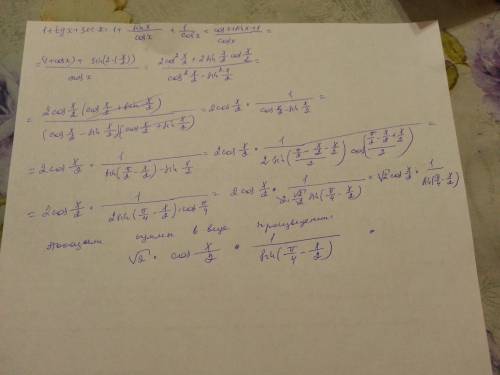 1 + tg x + sec x = 1 + sin x / cos x + 1 / cos x = cos x + sin x + 1 / cos x =
= (1 + cos x) + sin(2·(x/2)) / cos x = 2cos² x/2 + 2sin x/2 cos x/2 / cos² x/2 − sin² x/2 =
= 2cos x/2 (cos x/2 + sin x/2) / (cos x/2 − sin x/2)(cos x/2 + sin x/2) = 2cos x/2 · 1 / cos x/2 − sin x/2 =
= 2cos x/2 · 1 / sin(π/2 − x/2) − sin x/2 = 2cos x/2 · 1 / 2 sin(π/2 − x/2 − x/2 / 2) cos(π/2 − x/2 + x/2 / 2) =
= 2cos x/2 · 1 / 2sin(π/4 − x/2)·cos π/4 = 2cos x/2 · 1 / 2·√2/2 sin(π/4 − x/2) = √2 cos x/2 · 1 / sin(π/4 − x/2)
суммы в виде произведения:
√2 · cos x/2 · 1 / sin(π/4 − x/2)